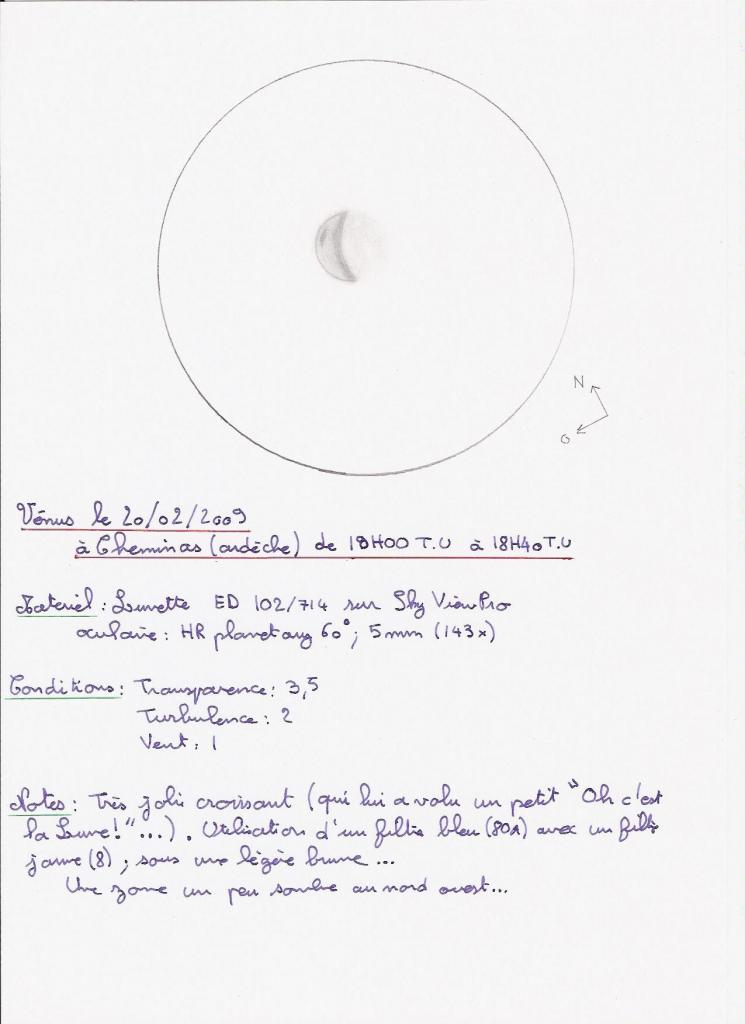 N
O
Vénus le 20/02/2009
à Cheminas (ardèche) de 18H00 T.U à 18H40 T.U
Materiel : Lunette ED 102/714 sur Sky View Pro
oculaire : HR planetary 60° ; 5mm (143x)
Conditions : Transparence : 3,5
Turbulence : 2
Vent : 1
Notes : Très joli croissant (qui lui a valu un petit "Oh c'est
la Lune!"...). Utilisation d'un filtre bleu (80A) avec un filtre
jaune (8) ; sous une légère brume ...
Une zone un peu sombre au nord ouest...